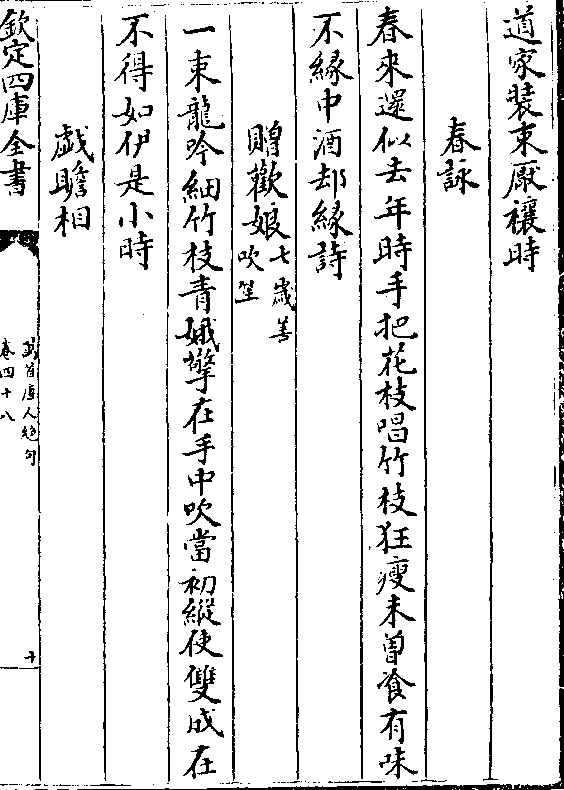 道家裝束厭禳時
春詠
春來還似去年時手把花枝唱竹枝狂瘦未曽飡有味
不縁中酒却縁詩
贈歡娘七歲善吹笙
一束龍吟細竹枝青娥擎在手中吹當初縱使雙成在
不得如伊是小時
戯贍相
欽定四庫全書
萬首唐人絶句
卷四十八
十